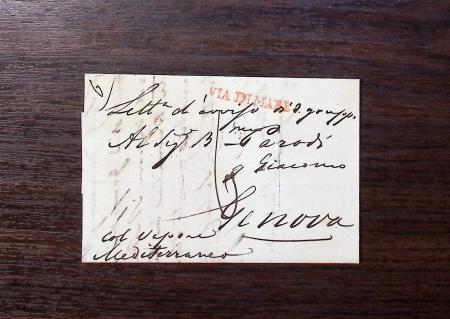 VIA DI MARE
Lett.ª d'avviso di 3 grupp.
Al Sig.r B.meo Parodi
q Giacomo
Genova
col Vapore
Mediterraneo